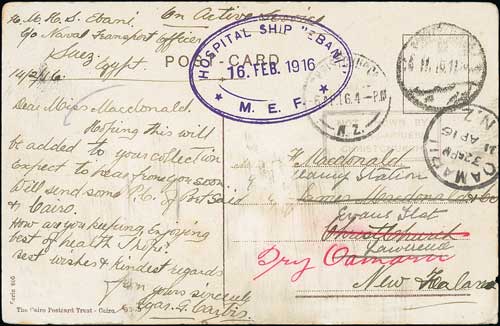 H. M. H. S. Ebani. On Active Service
C/o Naval Transport Officer
Suez
Egypt.
14/2/16
POST-CARD
HOSPITAL SHIP "EBANI"
16. FEB. 1916
M. E. F.
N.Z.
OAMARU
AP 16
N.Z.
Dear Miss Macdonald.
Hoping this will
be added to your collection
expect to hear from you soon
Will send some P.C. of Port Said
& Cairo.
How are you keeping, enjoying
best of health I hope.
Best wishes & kindest regards
from yours sincerely
Macdonald
Station
Christchurch
Lawrence
Dry Oamaru
New Zealand
Serie 805
The Cairo Postcard Trust - Cairo